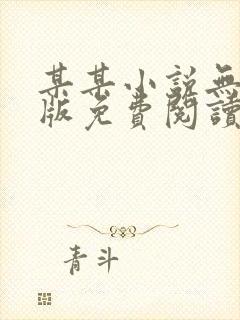 某某小說無
版免費閱讀
青斗